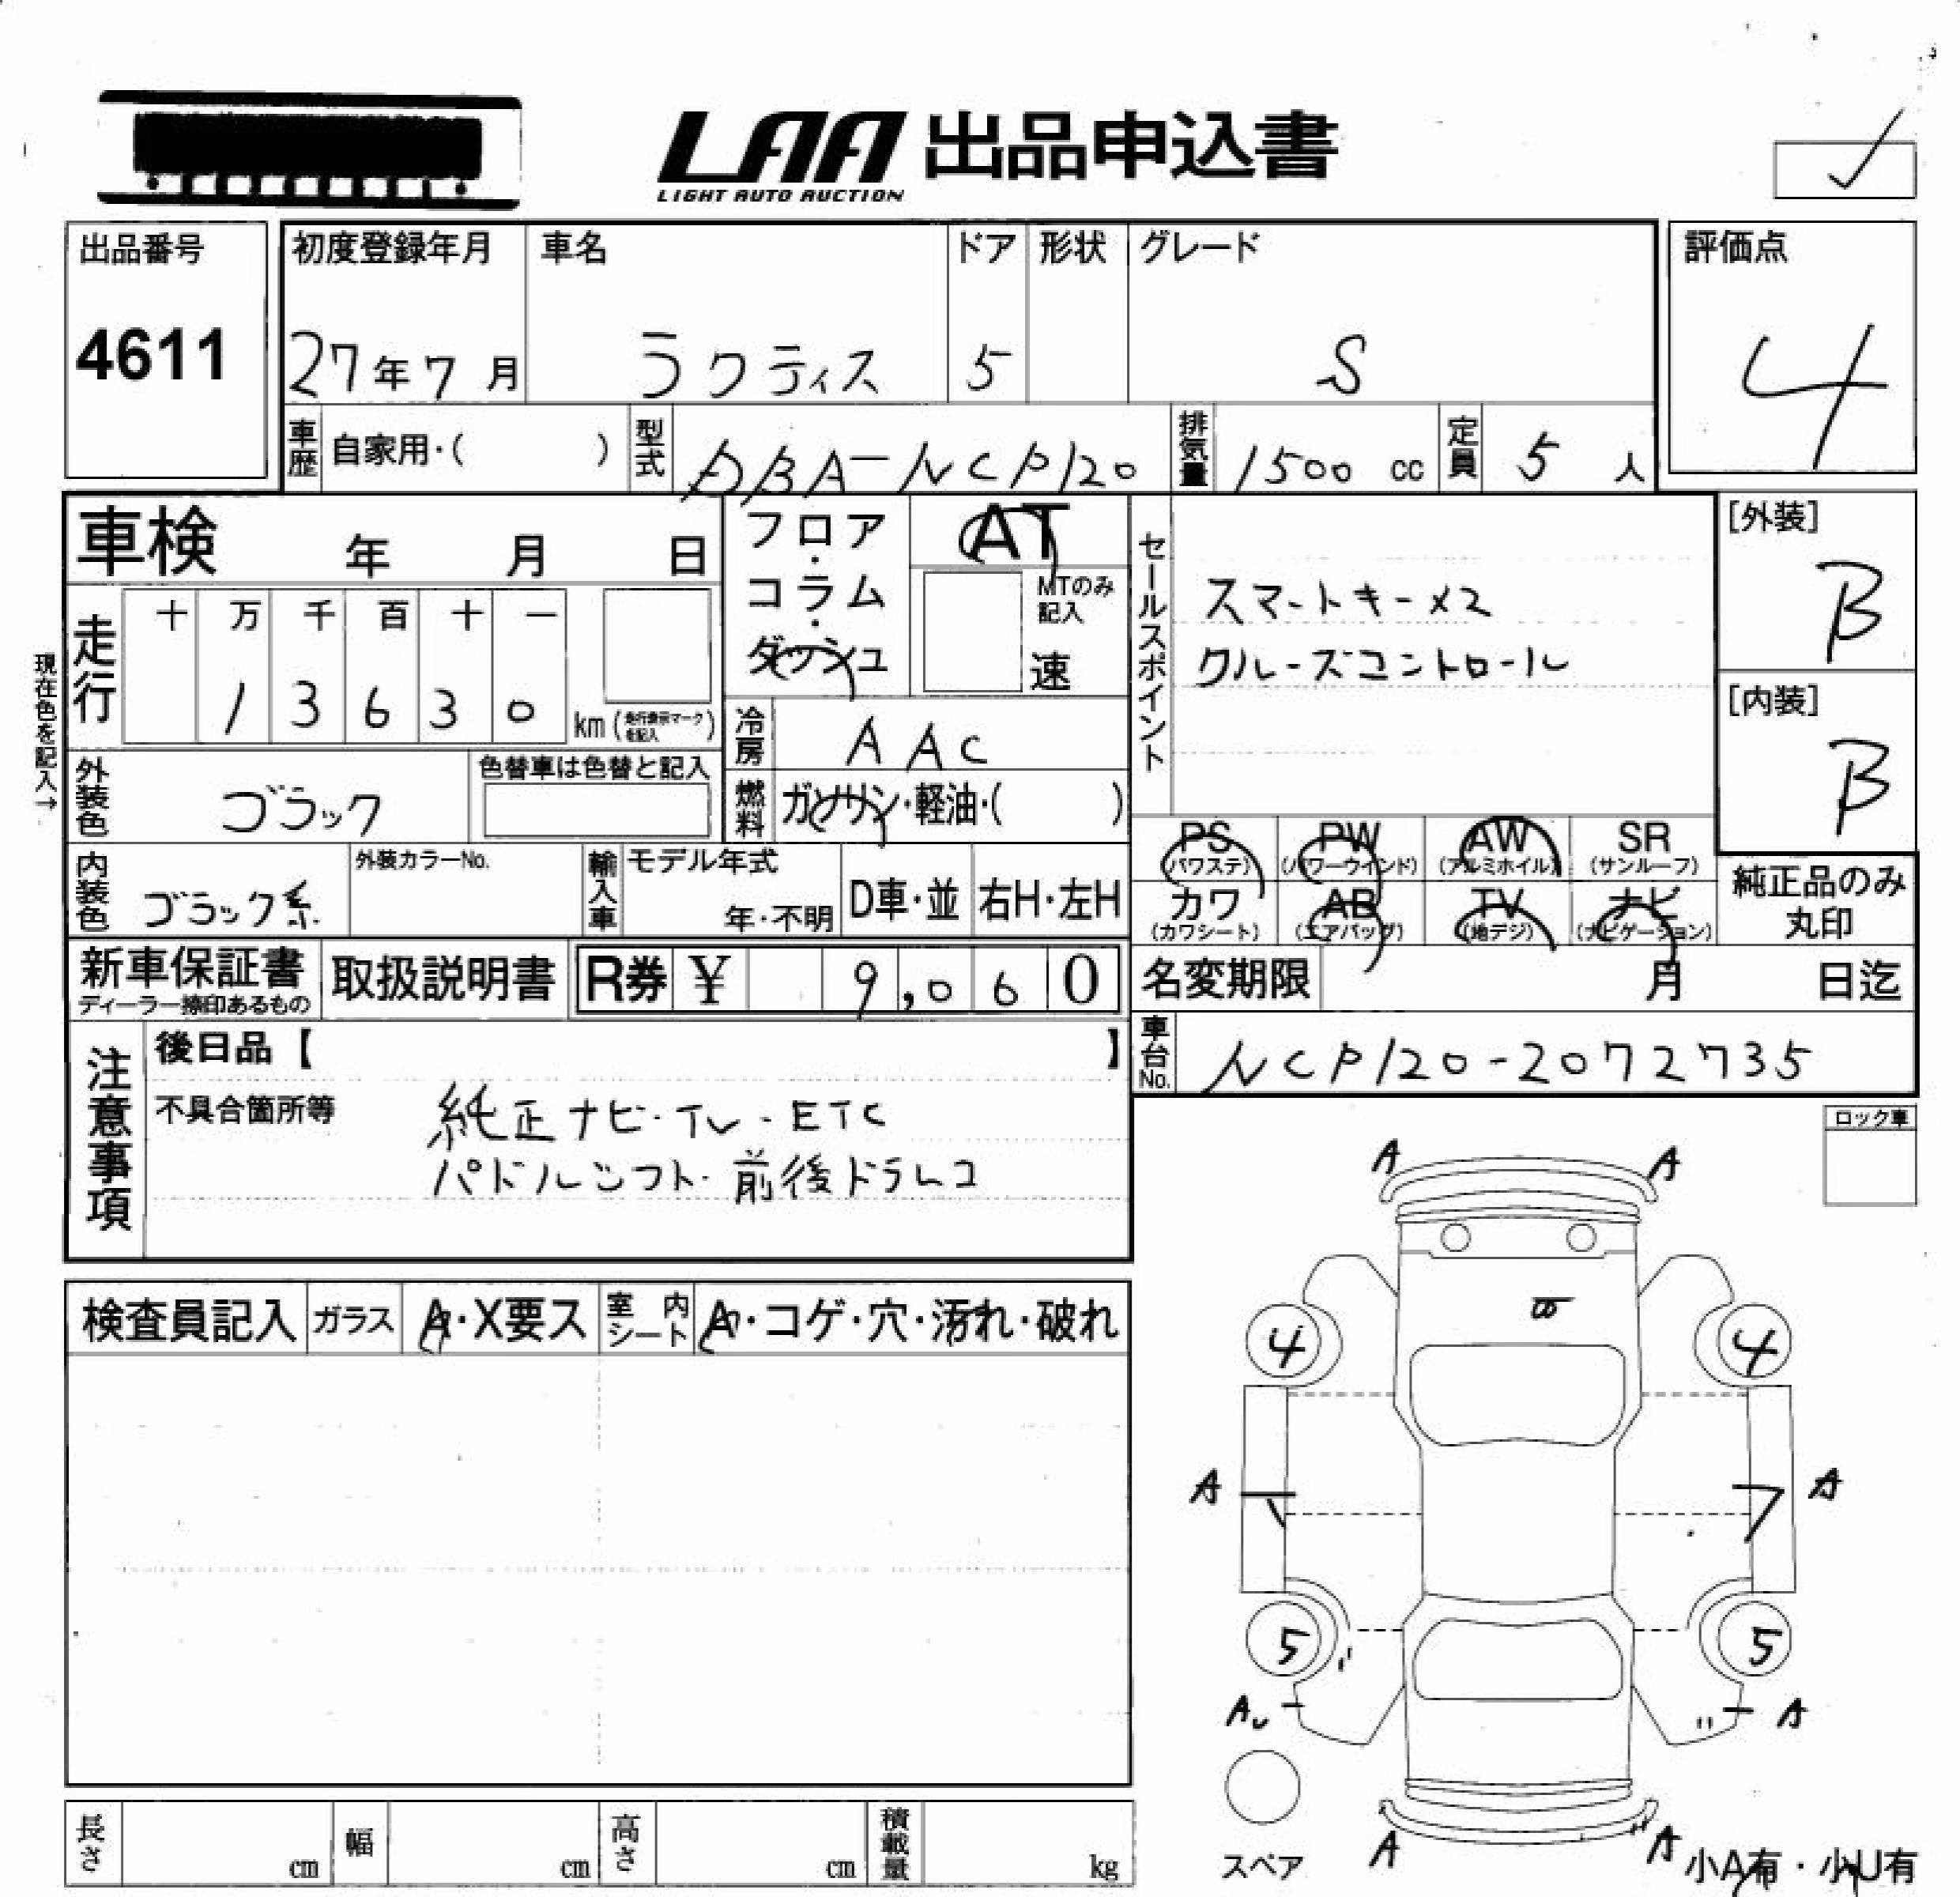 LAA 出品申込書
LIGHT AUTO AUCTION
出品番号
4611
初度登録年月
27年7月
車名
ラクティス
ドア
5
形状
グレード
S
評価点
4
車歴 自家用・( )
型式 DBA-NCP120
排気量 1500 cc
定員 5 人
車検 年 月 日
フロア・コラム・ダッシュ
AT
MTのみ記入
速
セールスポイント
スマートキー×2
クルーズコントロール
[外装]
B
[内装]
B
現在色を記入→
走行
十 万 千 百 十 一
1 3 6 3 0 km (走行表示マークを記入)
冷房 AAC
燃料 ガソリン・軽油・( )
外装色 ブラック
色替車は色替と記入
内装色 ブラック系
外装カラーNo.
輸入車
モデル年式
年・不明
D車・並
右H・左H
PS (パワステ)
PW (パワーウィンド)
AW (アルミホイル)
SR (サンルーフ)
カワ (カワシート)
AB (エアバッグ)
TV (地デジ)
ナビ (ナビゲーション)
純正品のみ丸印
新車保証書
ディーラー捺印あるもの
取扱説明書
R券 ¥ 9,060
名変期限 月 日迄
車台No. NCP120-2072735
注意事項
後日品【 】
不具合箇所等
純正ナビ・TV・ETC
パドルシフト・前後ドラレコ
ロック車
検査員記入
ガラス
A・X要ス
室内シート
A・コゲ・穴・汚れ・破れ
A A
4 4
A A
5 5
A A
A A
スペア
小A有・小U有
長さ cm
幅 cm
高さ cm
積載量 kg